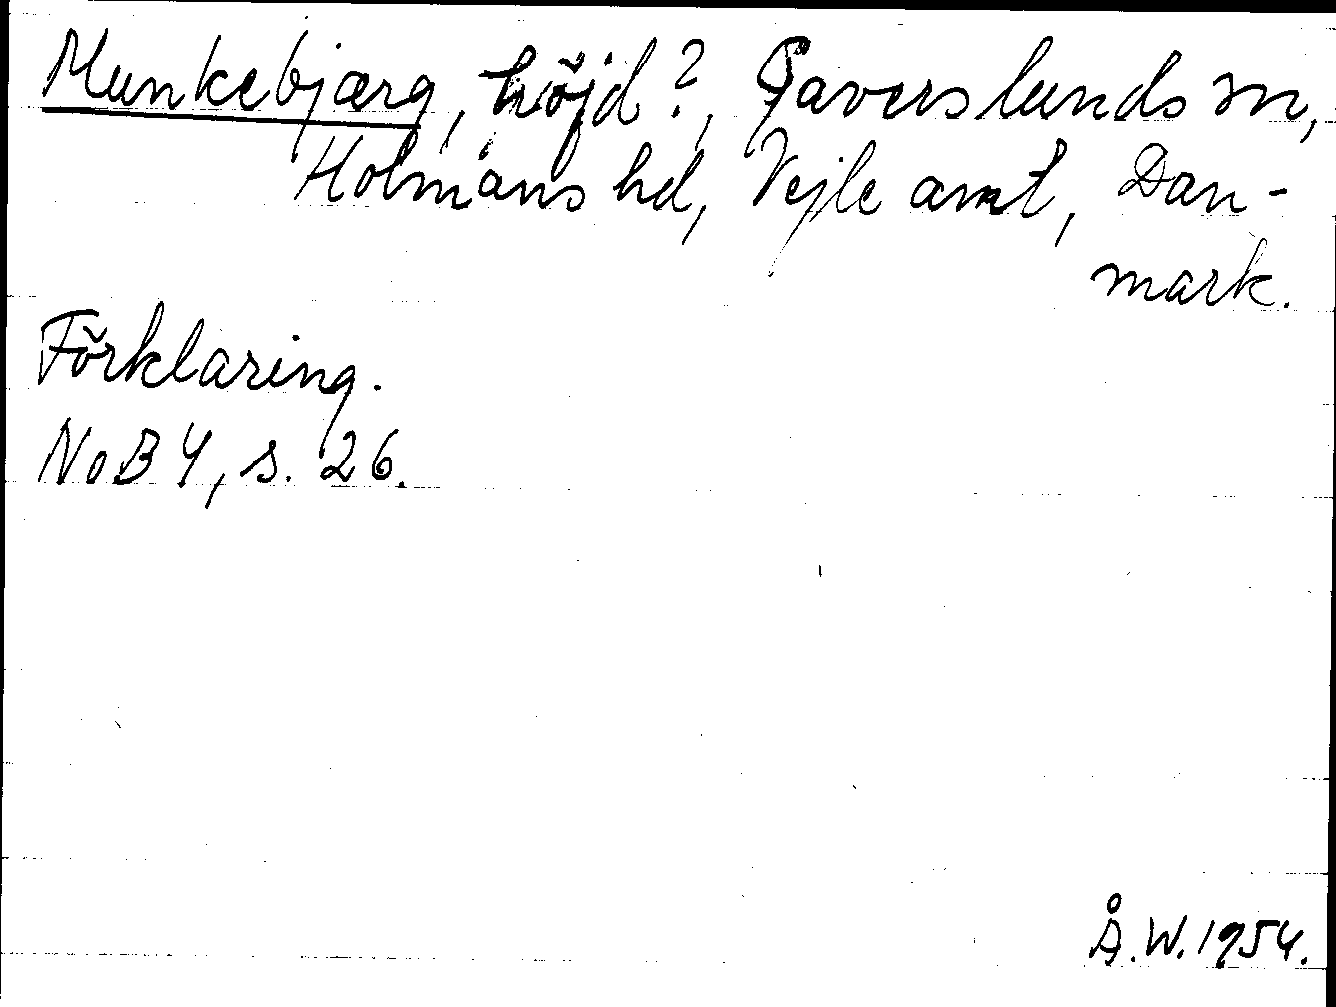 Munkebjærg, höjd?, Gaverslunds sn,
Holmans hd, Vejle amt, Dan-
mark.
Förklaring.
NoB 4, s. 26.
Å.W. 1954.